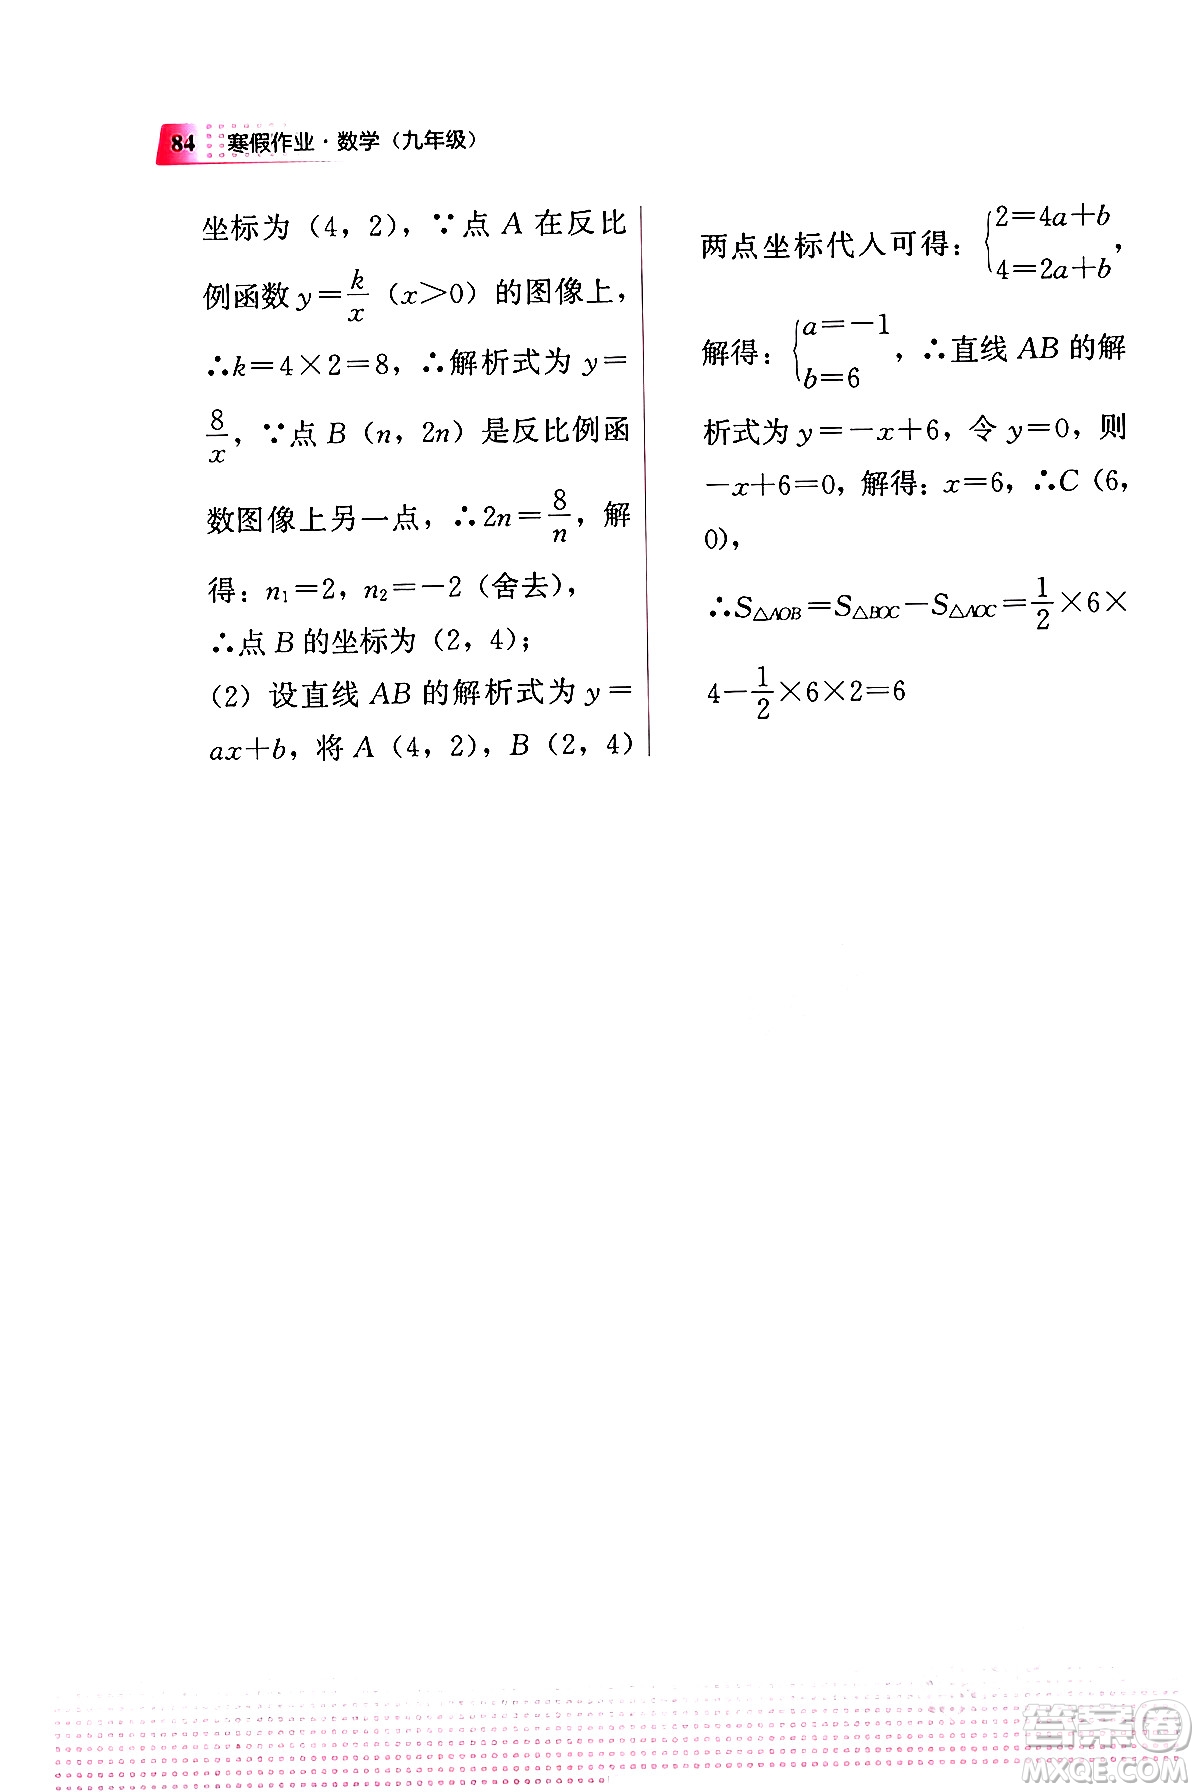 84 寒假作业·数学（九年级）
坐标为（4，2），∵点 A 在反比
例函数 y=k/x（x>0）的图像上，
∴k=4×2=8，∴解析式为 y=
8/x，∵点 B（n，2n）是反比例函
数图像上另一点，∴2n=8/n，解
得：n₁=2，n₂=-2（舍去），
∴点 B 的坐标为（2，4）；
（2）设直线 AB 的解析式为 y=
ax+b，将 A（4，2），B（2，4）
两点坐标代入可得：{2=4a+b
4=2a+b，
解得：{a=-1
b=6，∴直线 AB 的解
析式为 y=-x+6，令 y=0，则
-x+6=0，解得：x=6，∴C（6，
0），
∴S△AOB=S△BOC-S△AOC=1/2×6×
4-1/2×6×2=6
答案卷
MXQE.COM